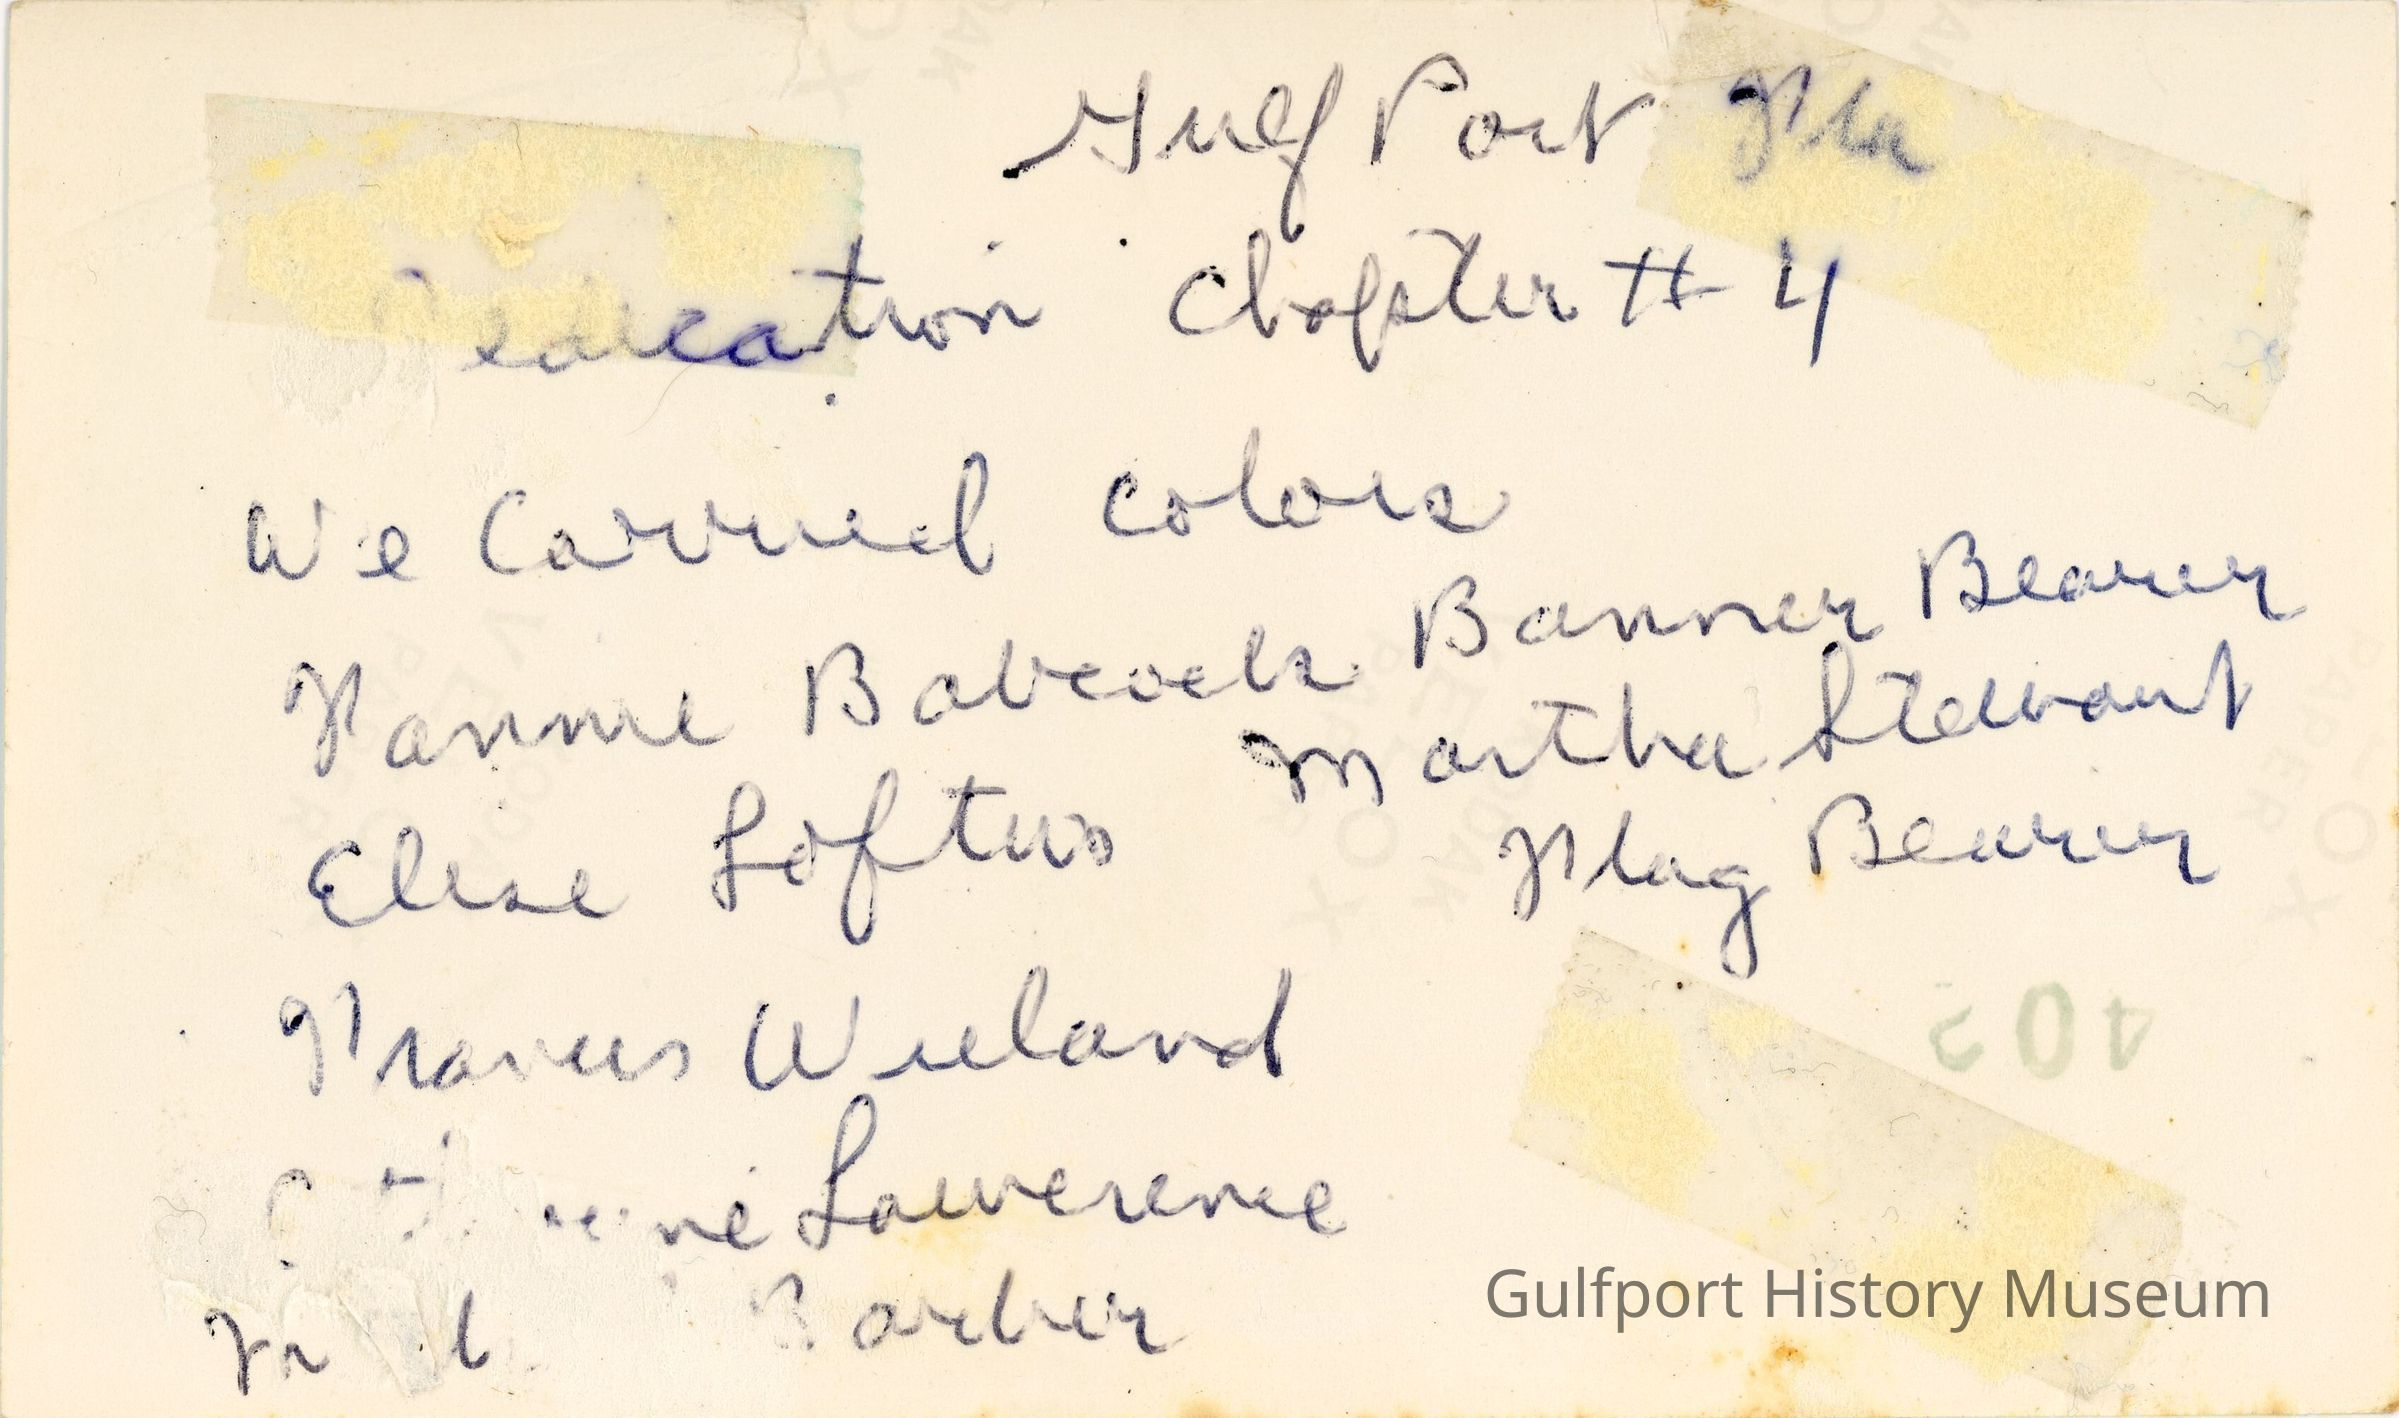 Gulf Port Fla
Dedication Chapter # 4
We Carried Colors
Fannie Babcock Banner Bearer
Elise Loftus Martha Stewart
Flag Bearer
Francis Wieland
Lawerence
Barber
402
Gulfport History Museum